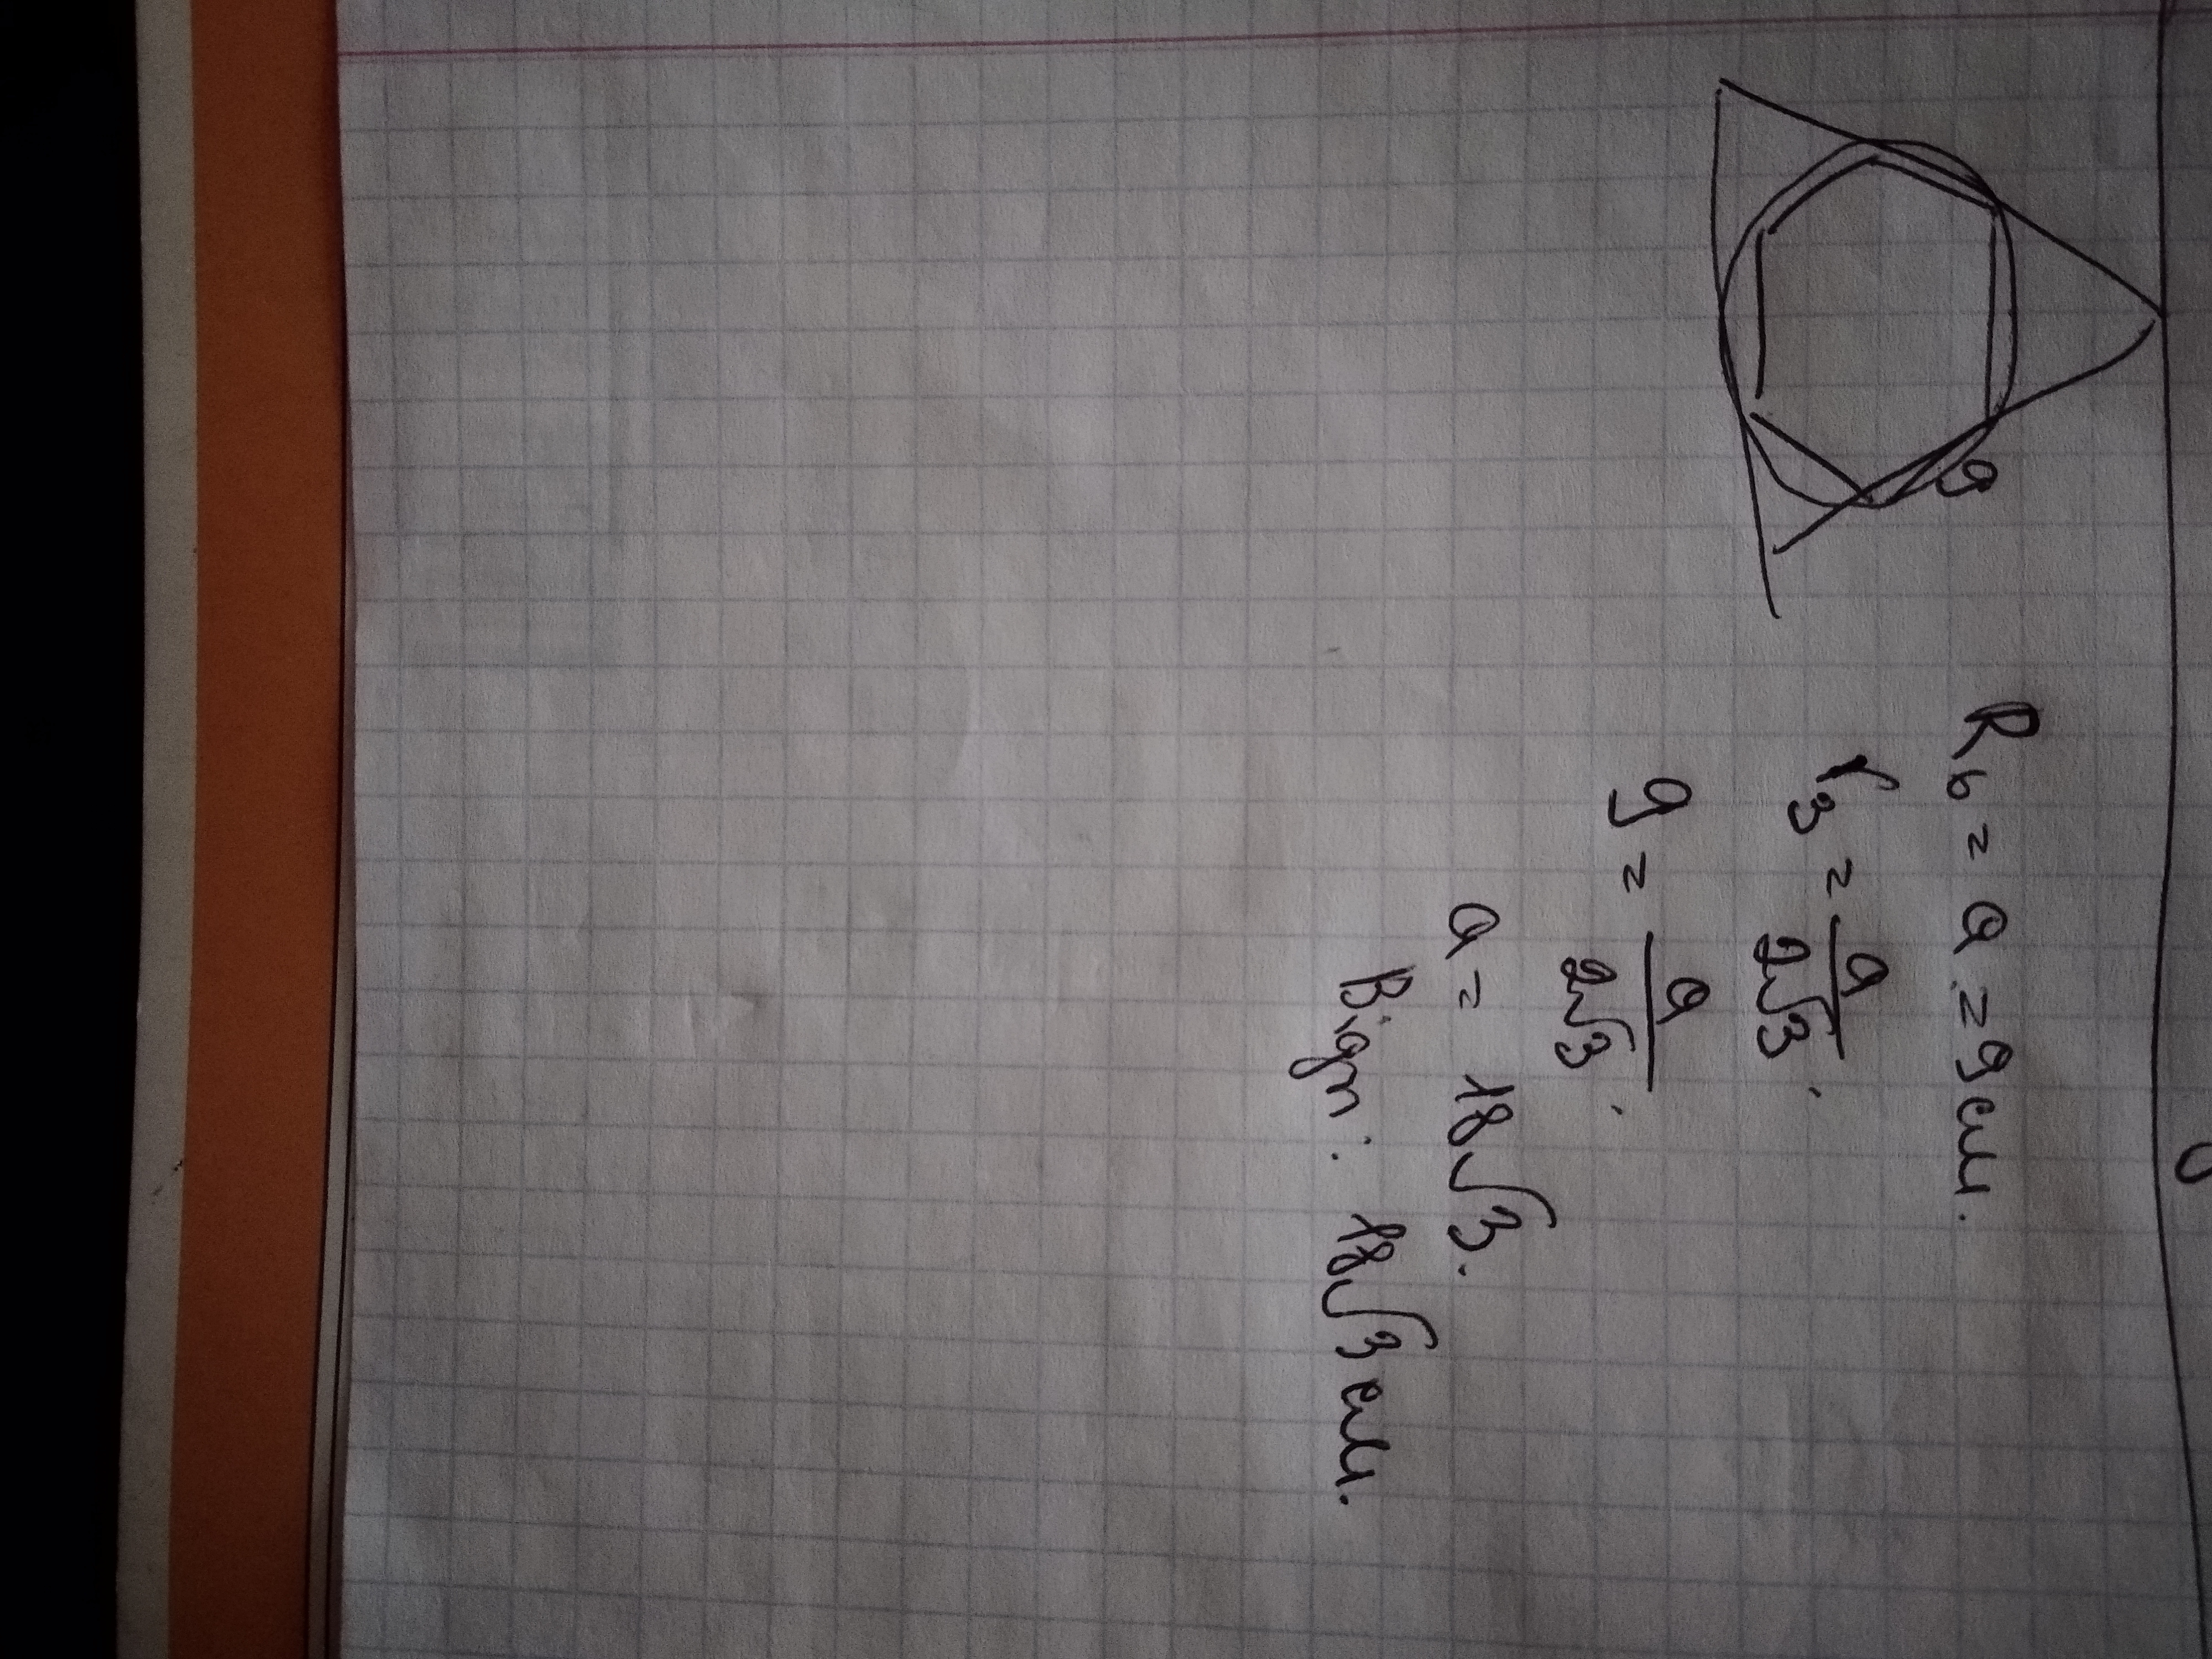 9
R₆ = a = 9 см.
r₃ = a/2√3.
9 = a/2√3.
a = 18√3.
Відп: 18√3 см.